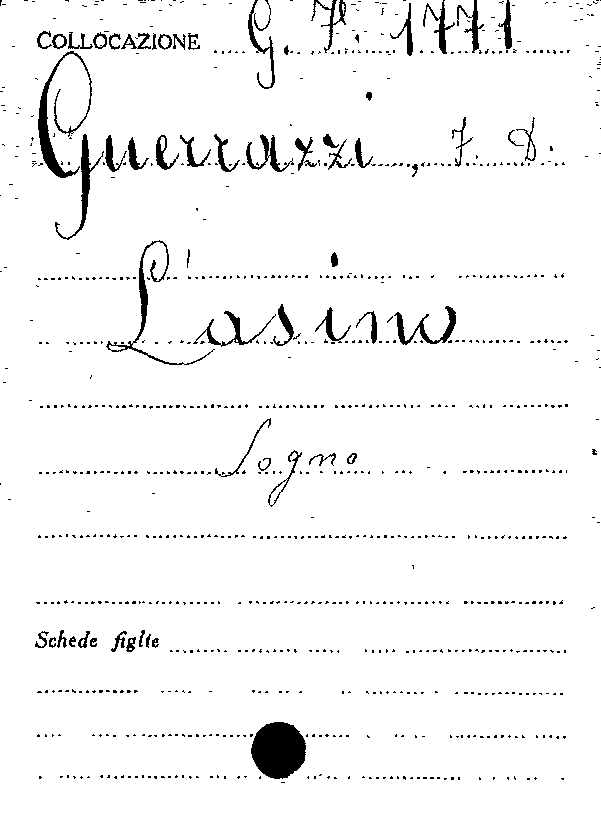 COLLOCAZIONE G. F. 1771
Guerrazzi, F. D.
L'asino
Sogno
Schede figlte